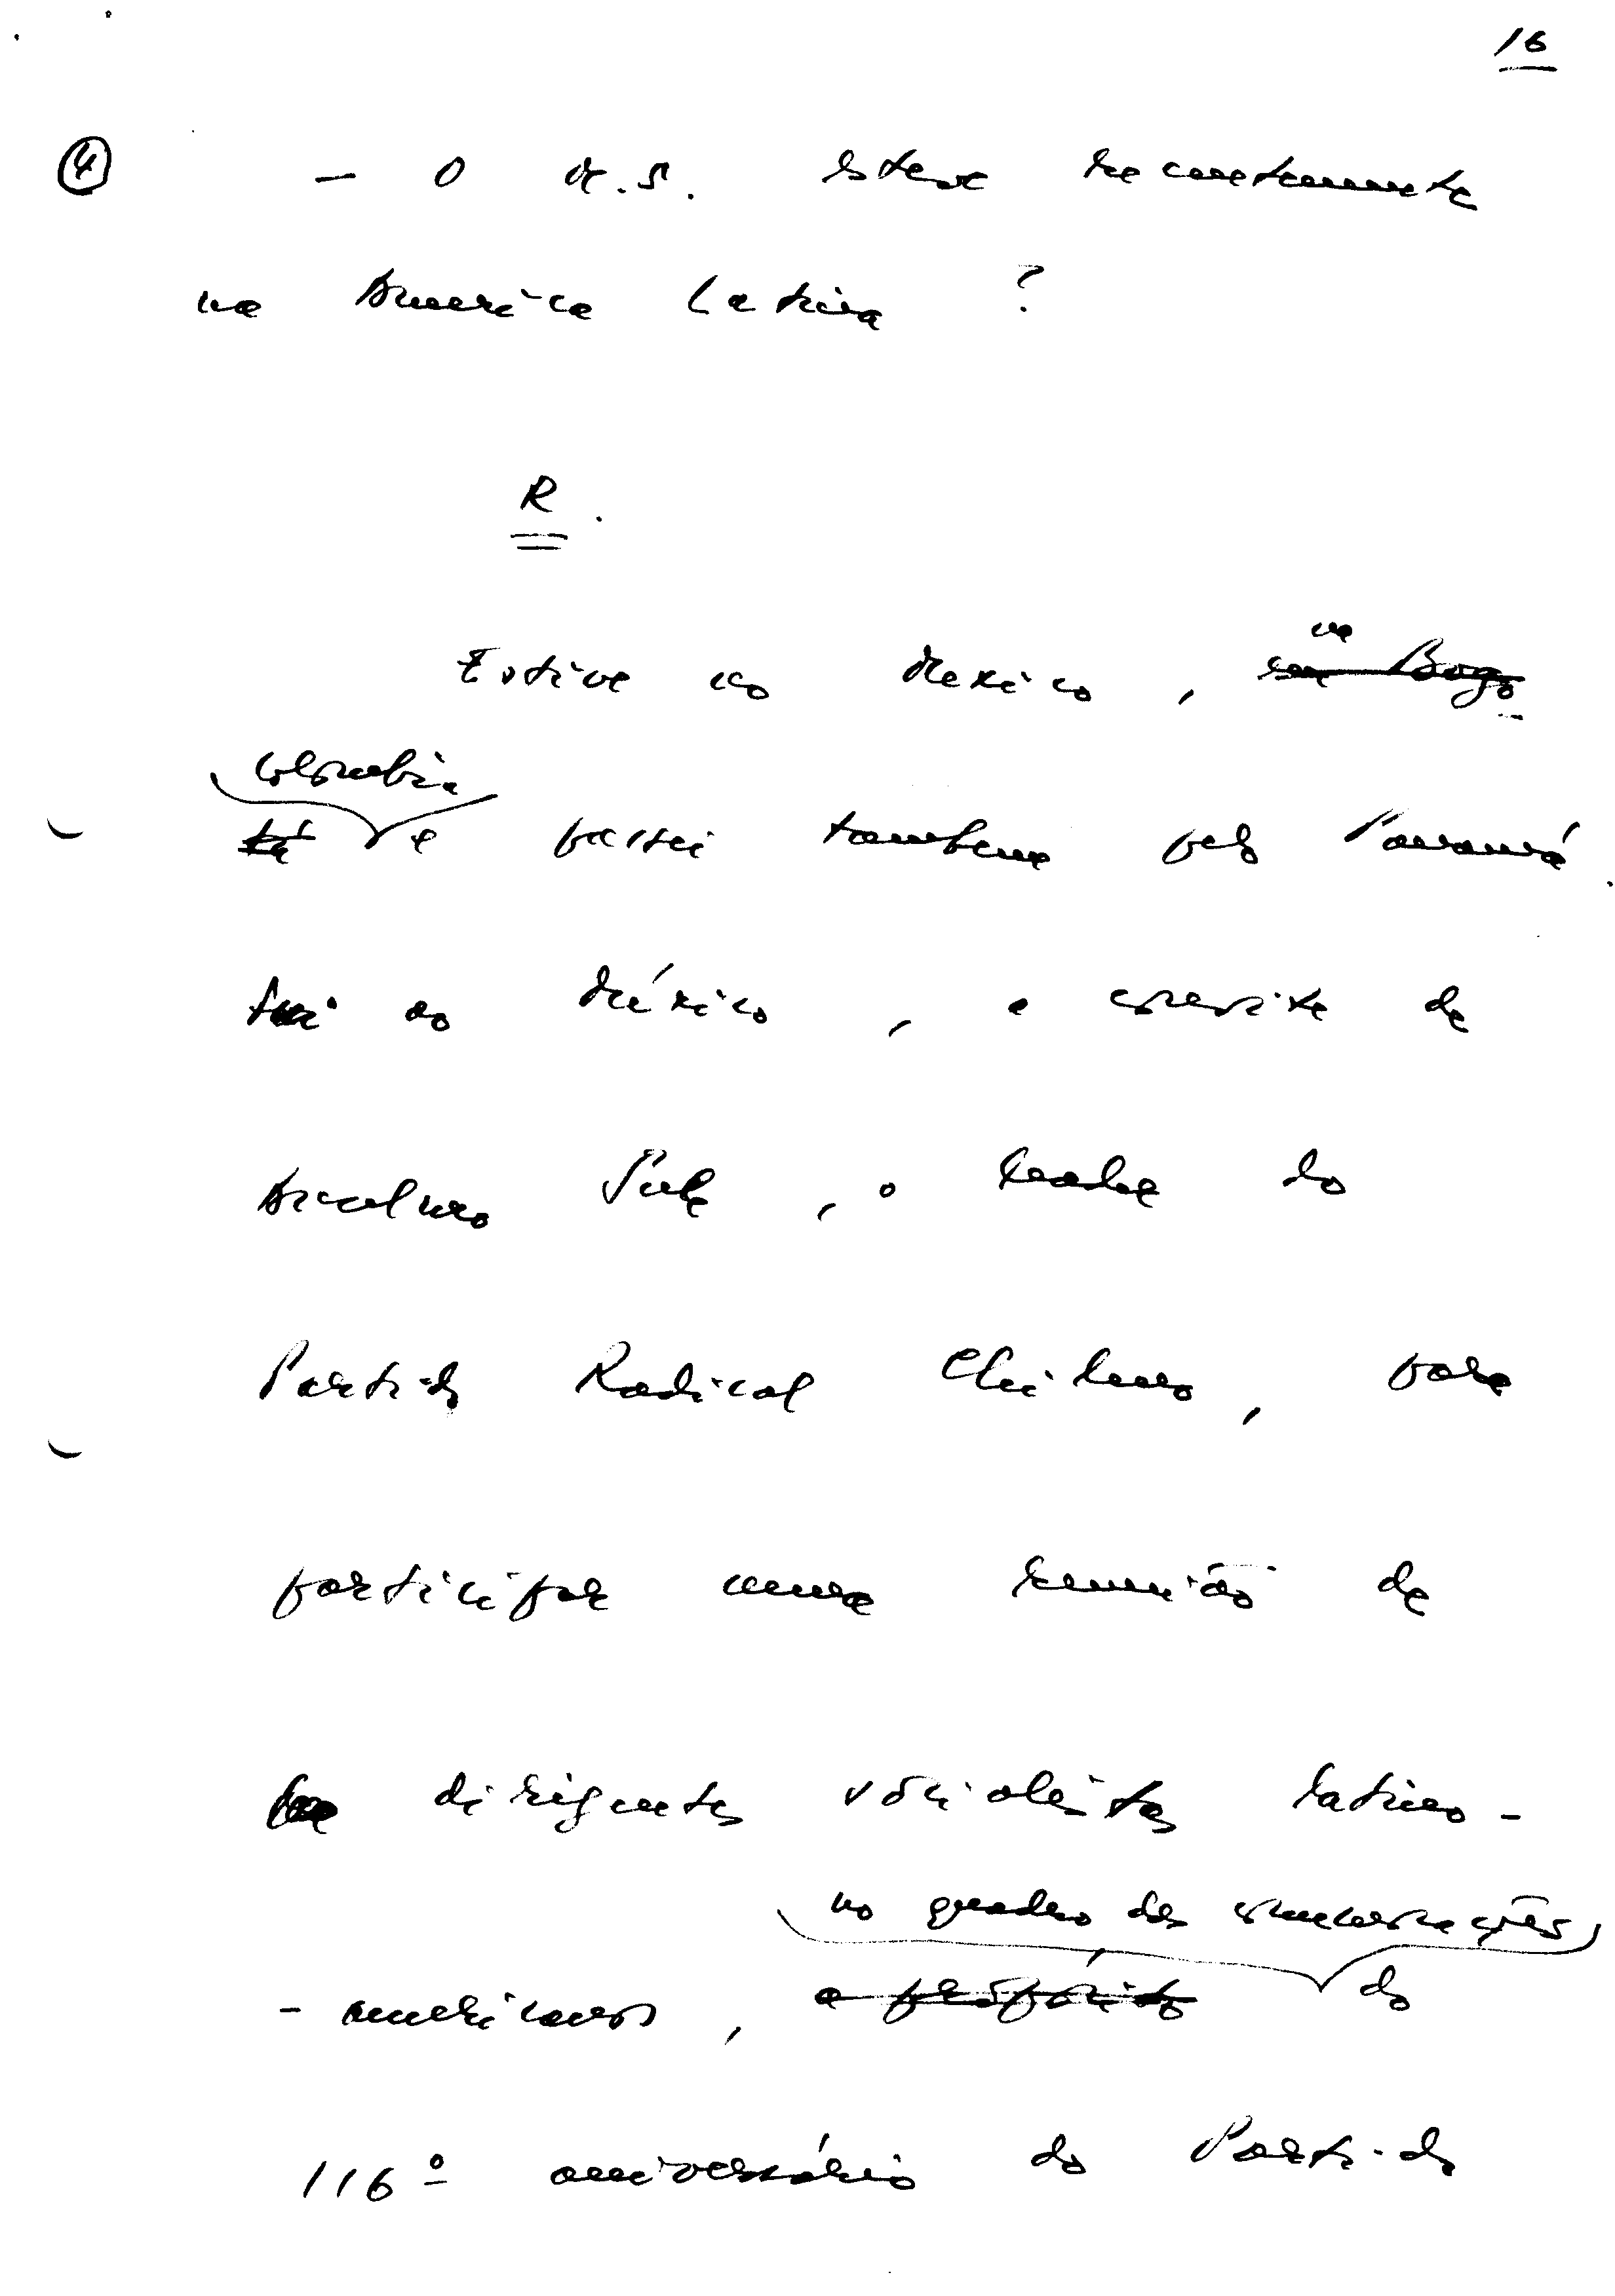 16
④ — O M.S. esteve recentemente
na America Latina ?
R.
Estive no Mexico, em Bogo
na
Colombia
tá e passei tambem pelo Panamá.
Fui ao México, a convite de
Anselmo Sule, o leader do
Partido Radical Chileno, para
participar numa reunião de
dirigentes socialistas latino-
no quadro das comemorações
-americanos, a propósito do
116º aniversário do Partido